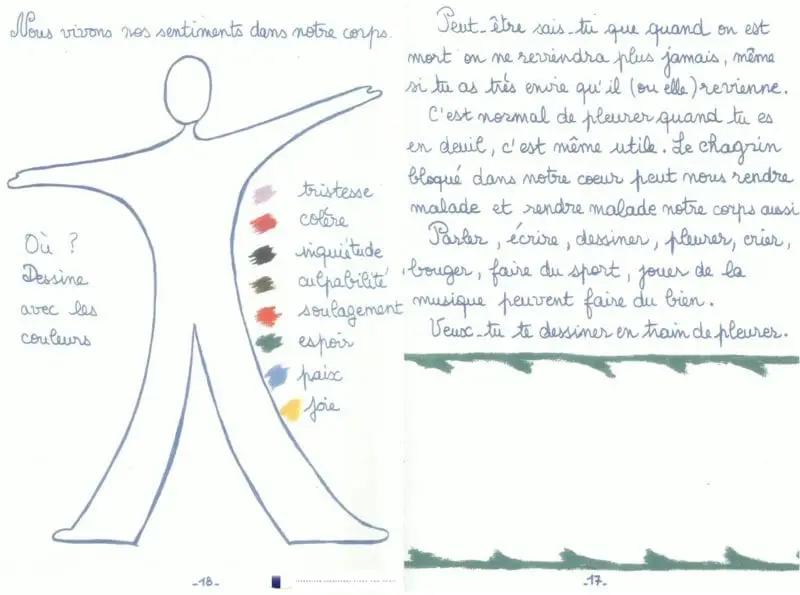 Nous vivons nos sentiments dans notre corps.
tristesse
colère
inquiétude
culpabilité
soulagement
espoir
paix
joie
Où ?
Dessine
avec les
couleurs
-18-
Peut-être sais-tu que quand on est
mort on ne reviendra plus jamais, même
si tu as très envie qu'il (ou elle) revienne.
C'est normal de pleurer quand tu es
en deuil, c'est même utile. Le chagrin
bloqué dans notre coeur peut nous rendre
malade et rendre malade notre corps aussi
Parler, écrire, dessiner, pleurer, crier,
bouger, faire du sport, jouer de la
musique peuvent faire du bien.
Veux-tu te dessiner en train de pleurer.
-17-